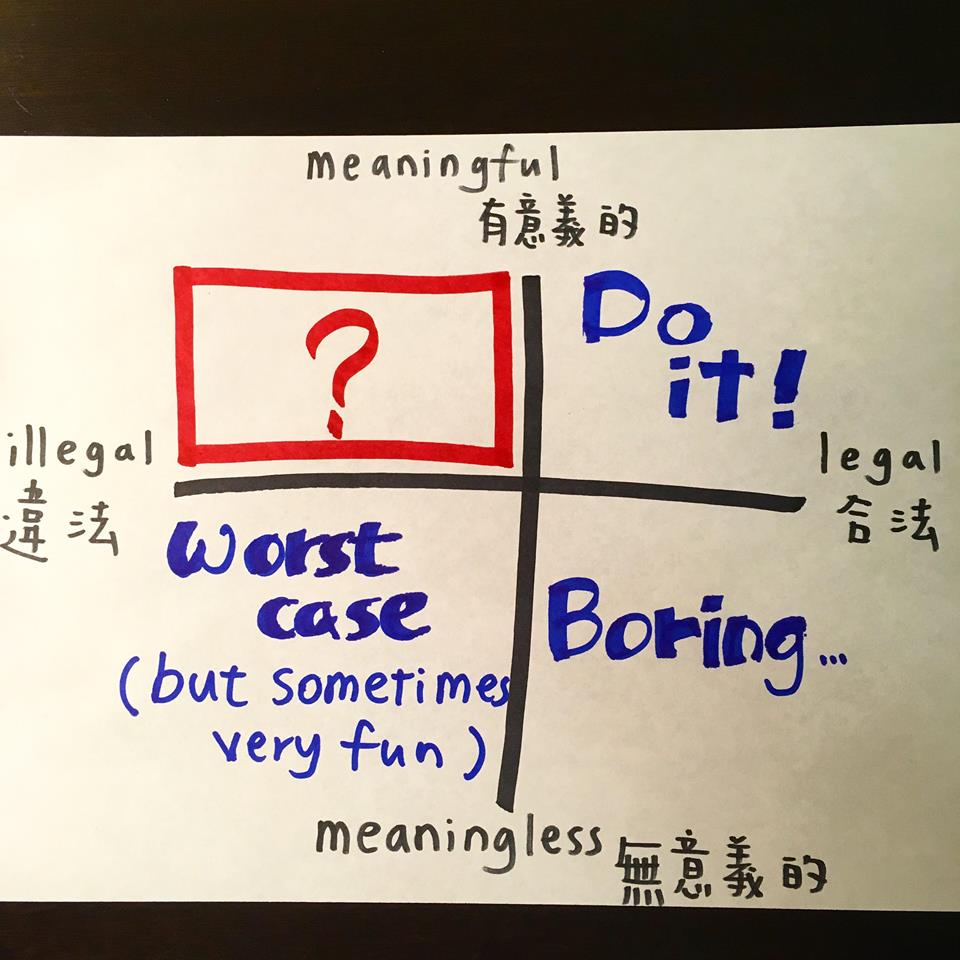 meaningful
有意義的
?
Do
it!
illegal
違法
legal
合法
Worst
case
(but sometimes
very fun)
Boring...
meaningless
無意義的